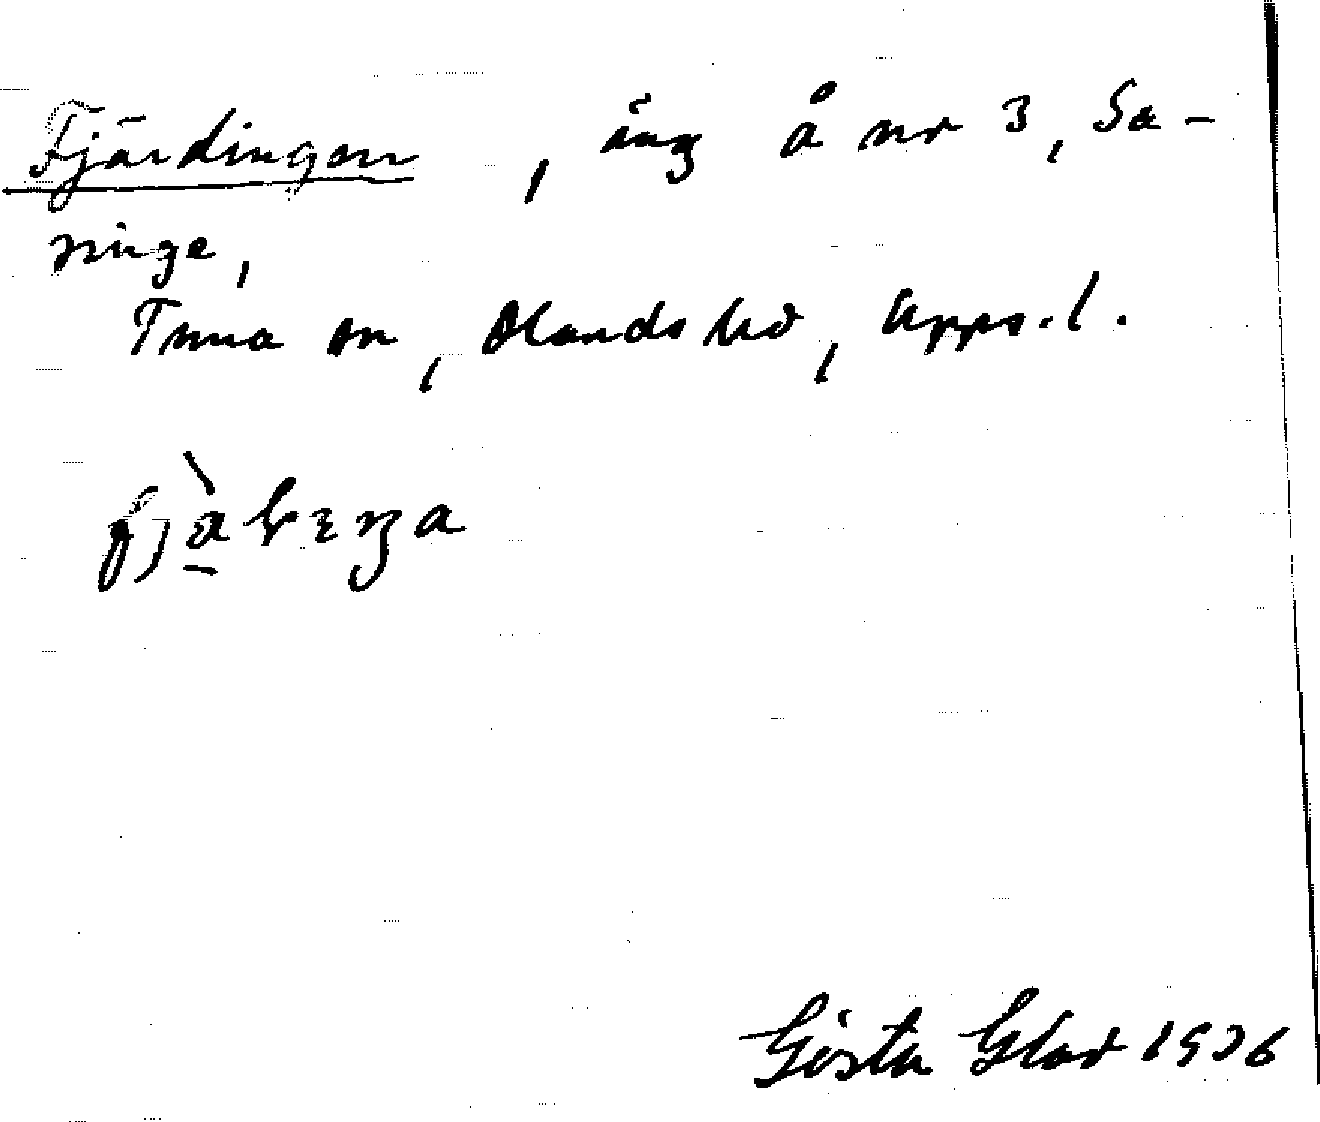 Fjärdingen, äng å nr 3, Sa-
ninge,
Tuna sn, Olands hd, Upps. l.
Gösta Glad 1936